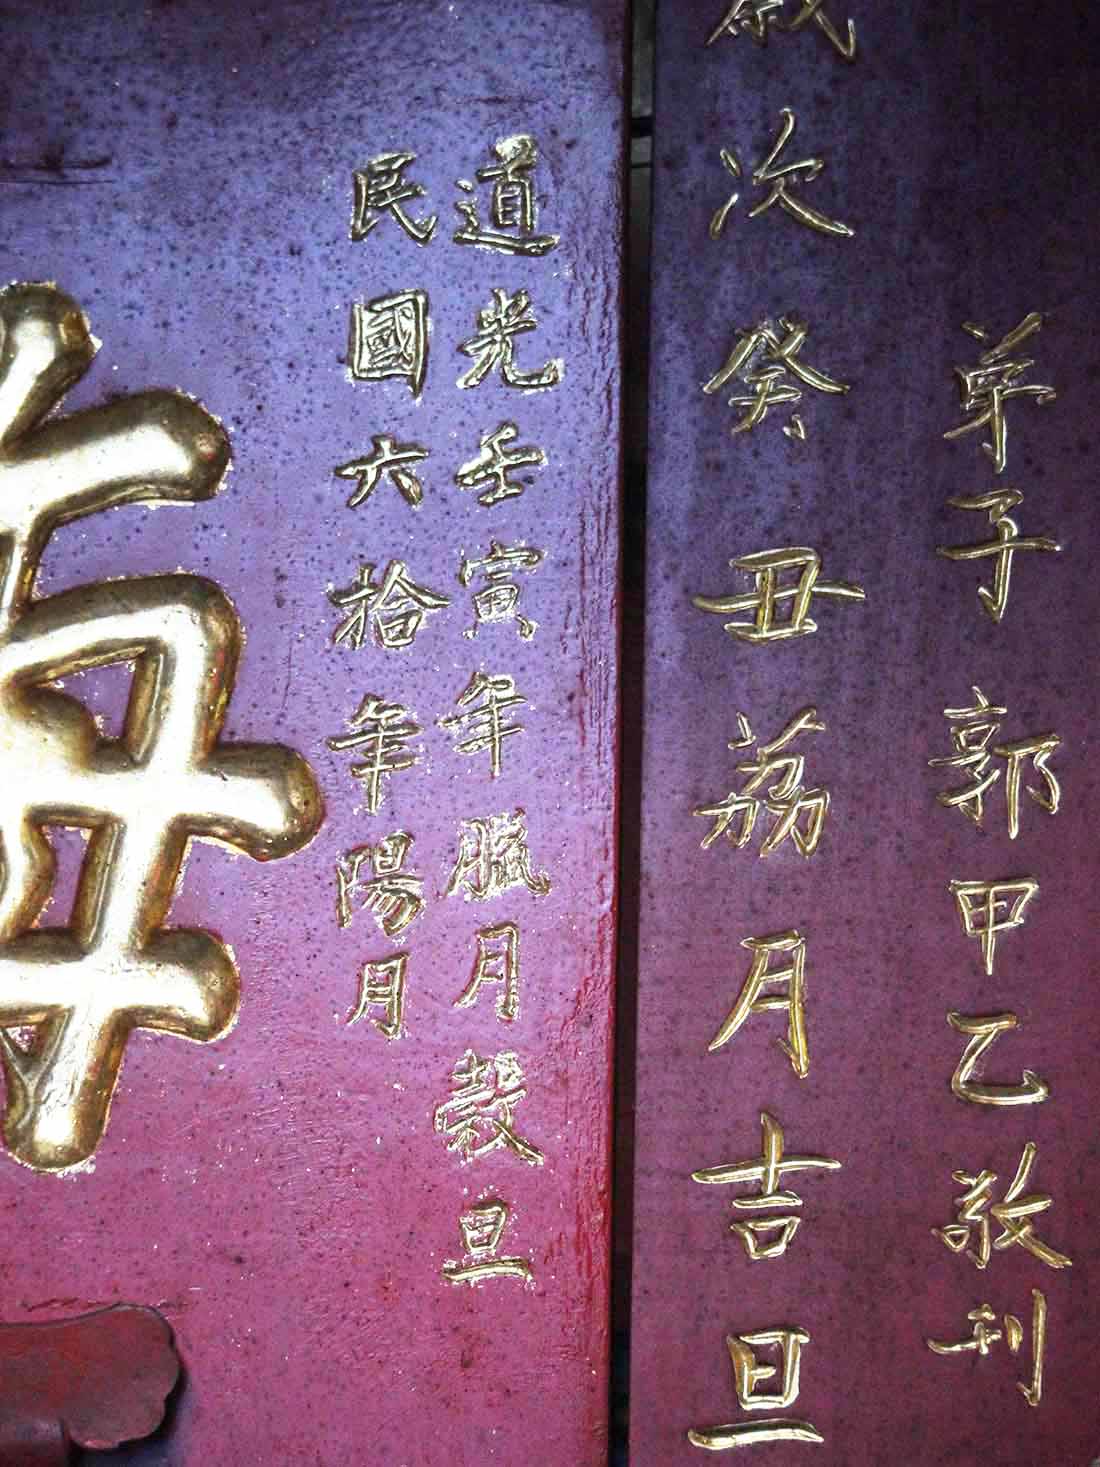 弟子郭甲乙敬刊
歲次癸丑荔月吉旦
道光壬寅年臘月穀旦
民國六拾年陽月
海